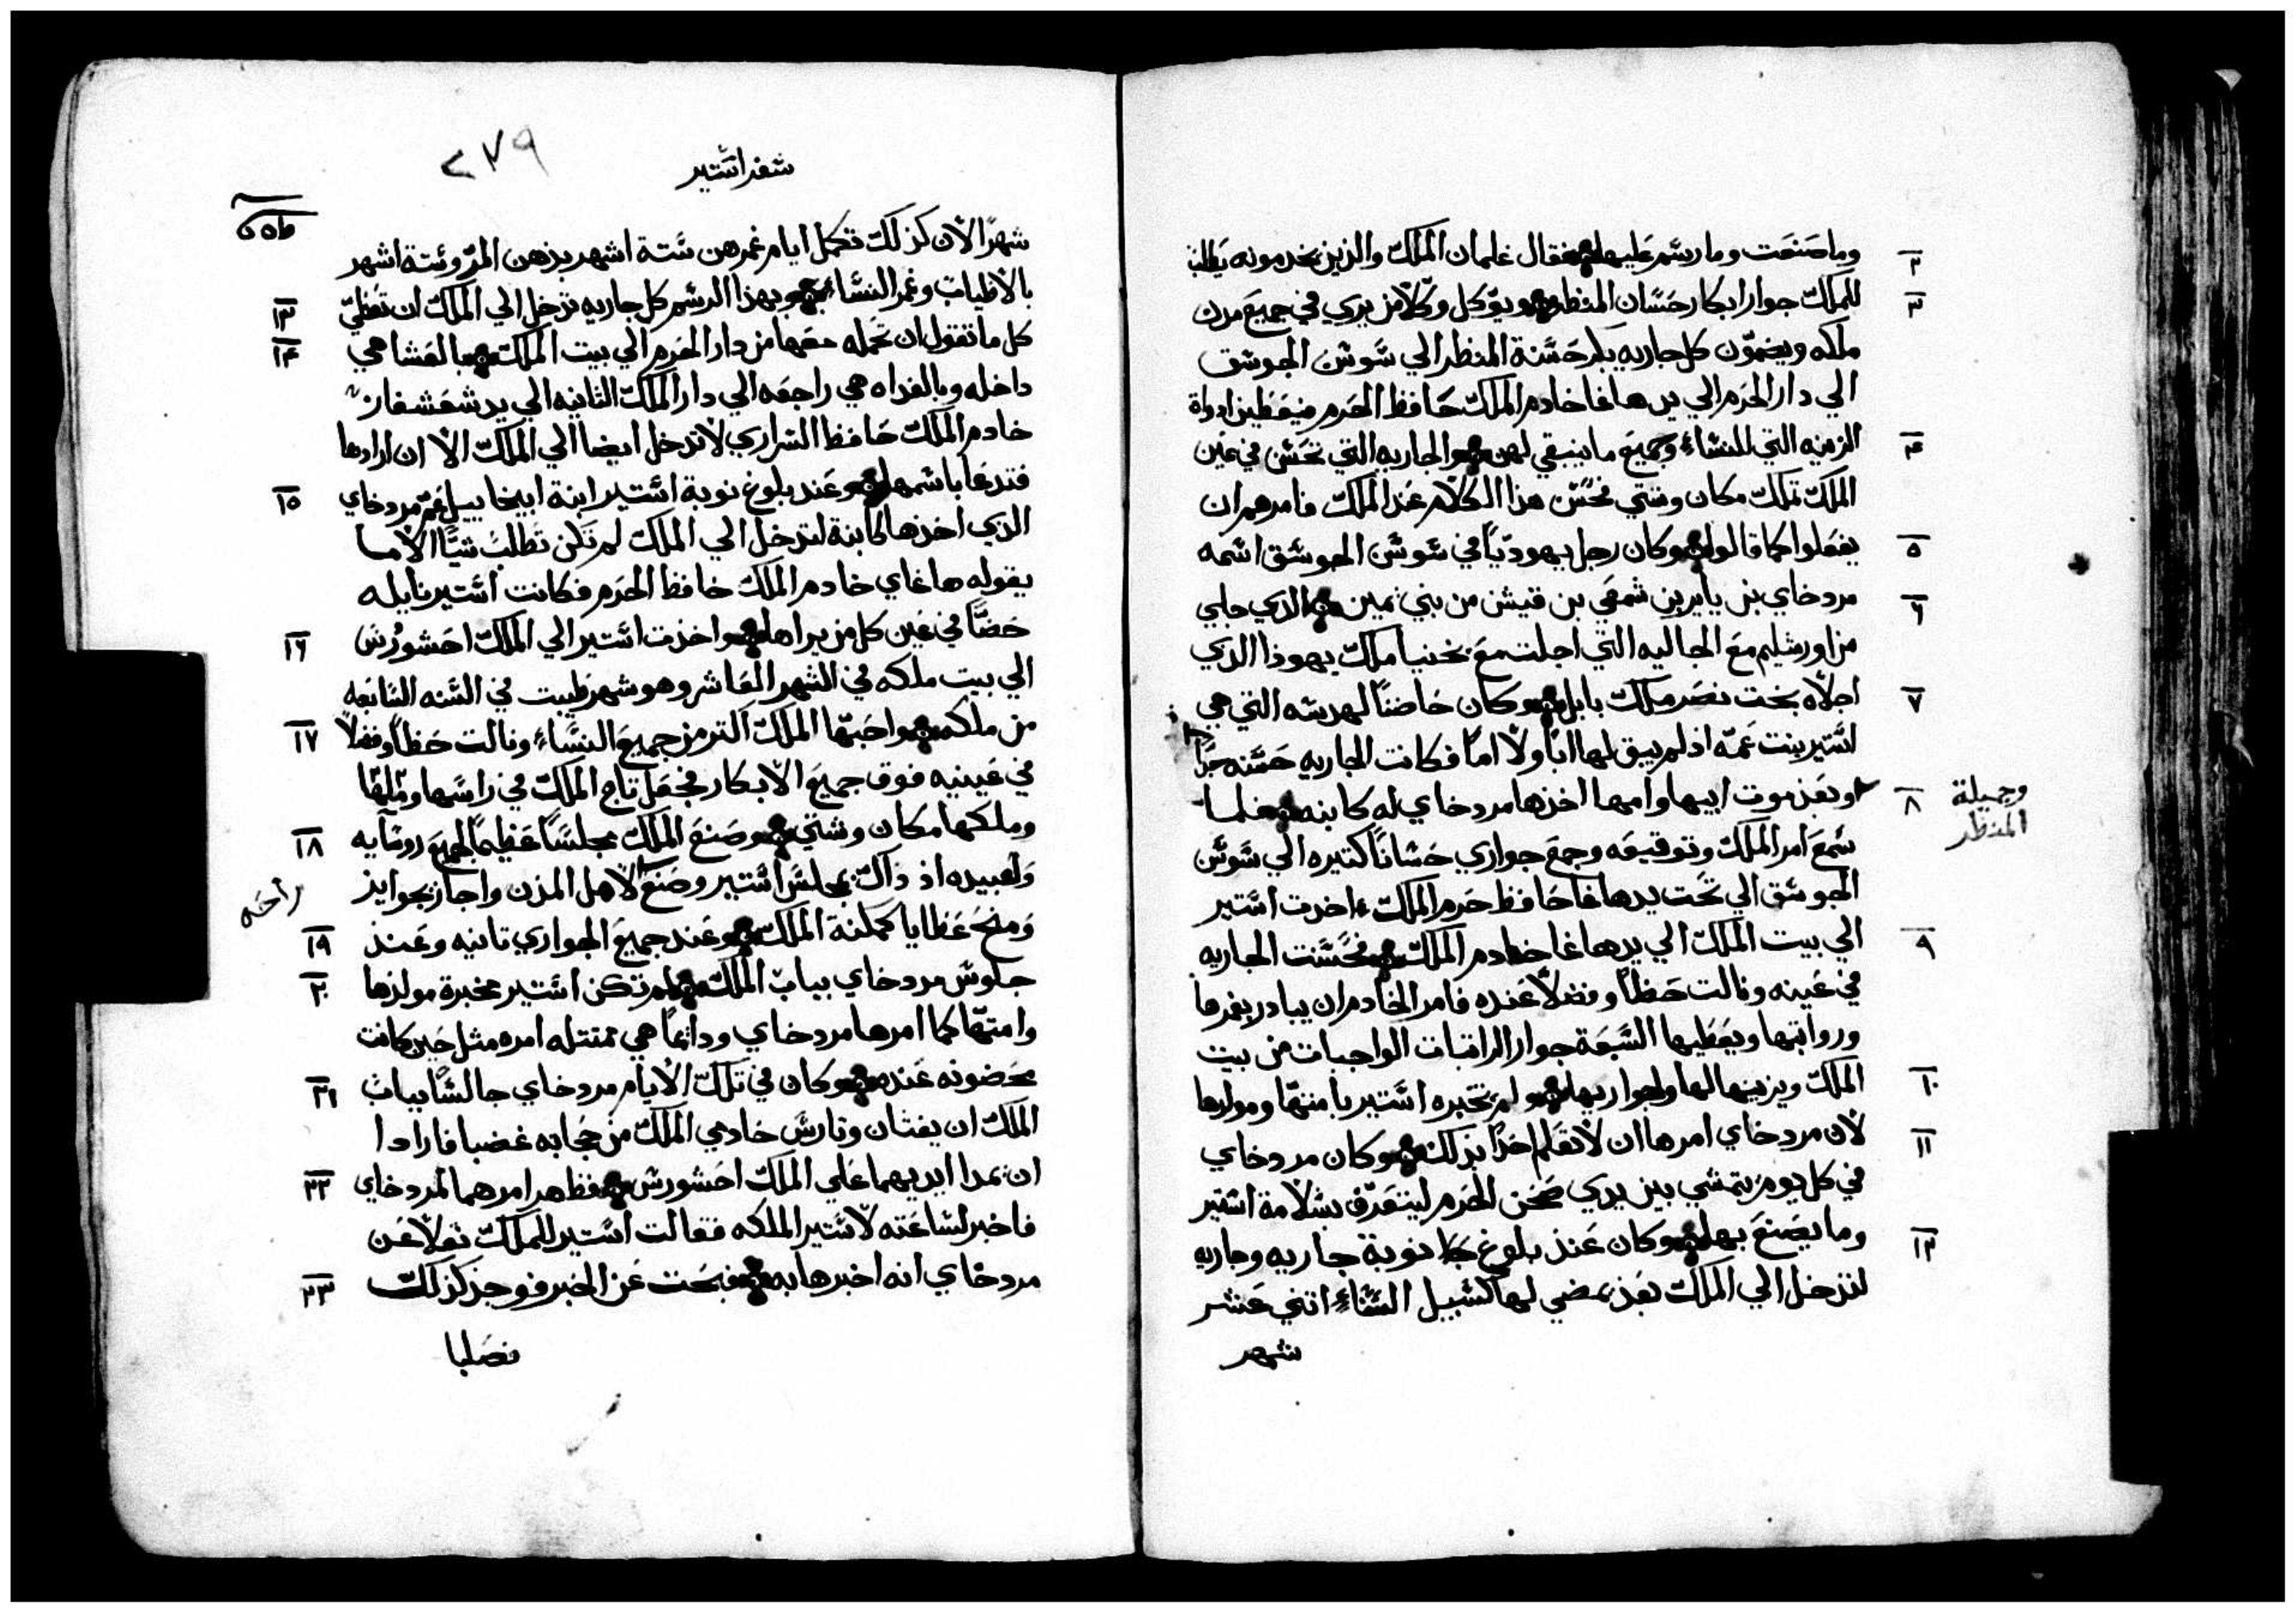 وما صنعت وما رسم عليها فقال غلمان الملك والذين يخدمونه يطلب
٢
للملك جوار ابكار حسان المنظر ويوكل وكلا من يري في جميع مدن
٣
ملكه ويضمون كل جاريه بكر حسنة المنظر الي شوشن الجوشق
الي دار الحرم الي يد هاغا خادم الملك حافظ الحرم فيعطين ادواة
الزينه التي للنساء وجميع ما ينبقي لهن والجاريه التي تحسن في عين
٤
الملك تملك مكان وشتي فحسن هذا الكلام عند الملك فامرهم ان
يفعلوا كما قالوا وكان رجل يهوديا في شوشن الجوشق اسمه
٥
مردخاي بن يايرين شمعي بن قيش من بني يمين الذي جلي
٦
من اورشليم مع الجاليه التي اجلت مع يخنيا ملك يهوذا الذي
اجلاه بخت نصر ملك بابل وكان حاضنا لهدسه التي هي
٧
استير بنت عمه اذ لم يبق لها ابا ولا اما فكانت الجاريه حسنه جدا
وجميلة
المنظر
وبعد موت ابيها وامها اخذها مردخاي له كابنه فلما
٨
سمع امر الملك وتوقيعه وجمع جواري حسانا كتيره الي شوشن
الجوشق الي تحت يد هاغا حافظ حرم الملك اخدت استير
الي بيت الملك الي يد هاغا خادم الملك فحسنت الجاريه
٩
في عينه ونالت حظا وفضلا عنده فامر الخادم ان يبادر بغمرها
ورواتبها ويعطيها السبعة جوار الراتبات الواجبات من بيت
الملك ويزينها لها ولجواريها ولم تخبره استير بامتها ومولدها
١٠
لان مردخاي امرها ان لا تعلم احدا بذلك وكان مردخاي
١١
في كل يوم يتمشي بين يدي صحن الحرم ليتعرف بسلامة استير
وما يصنع بها وكان عند بلوغ نوبة جاريه وجاريه
١٢
لتدخل الي الملك بعد يمضي لها كسبيل النساء اتني عشر
شهر
٢٧٩
سفر استير
شهرا لان كذلك تكمل ايام غمرهن ستة اشهر بدهن المر وستة اشهر
بالاطياب وغمر النساء وبهذا الرسم كل جاريه تدخل الي الملك ان تعطي
١٣
كل ما تقول ان تحمله معها من دار الحرم الي بيت الملك بالعشا هي
١٤
داخله وبالغداه هي راجعه الي دار الملك التانيه الي يد شعشغاز
خادم الملك حافظ السراري لا تدخل ايضا الي الملك الا ان ارادها
فتدعا باسمها وعند بلوغ نوبة استير ابنة ابيخاييل عم مردخاي
١٥
الذي اخذها كابنة لتدخل الي الملك لم تكن تطلب شيا الا ما
يقوله هاغاي خادم الملك حافظ الحرم فكانت استير نايله
حضا في عين كل من يراها واخذت استير الي الملك احشورش
١٦
الي بيت ملكه في الشهر العاشر وهو شهر طيبت في السنه السابعه
من ملكه واحبها الملك اكتر من جميع النساء ونالت حظا وفضلا
١٧
في عينيه فوق جميع الابكار فجعل تاج الملك في راسها وملكها
وملكها مكان وشتي وصنع الملك مجلسا عظيما لجميع روسايه
١٨
ولعبيده اذ ذاك مجلس استير وصنع لاهل المدن واجاز بجوايز
راحه
ومنح عطايا كمكنة الملك وعند جميع الجواري تانيه وعند
١٩
جلوس مردخاي بباب الملك لم تكن استير مخبرة مولدها
٢٠
وامتها كما امرها مردخاي ودايما هي تمتتله امره مثل حين كانت
محضونه عنده وكان في تلك الايام مردخاي جالسا بباب
٢١
الملك ان بغتان وتارش خادمي الملك من حجابه غضبا فارادا
ان يمدا ايديهما علي الملك احشورش فظهر امرهما لمردخاي
٢٢
فاخبر لساعته لاستير الملكه فقالت استير للملك نقلا عن
مردخاي انه اخبرها به فبحت عن الخبر فوجد كذلك
٢٣
فصلبا